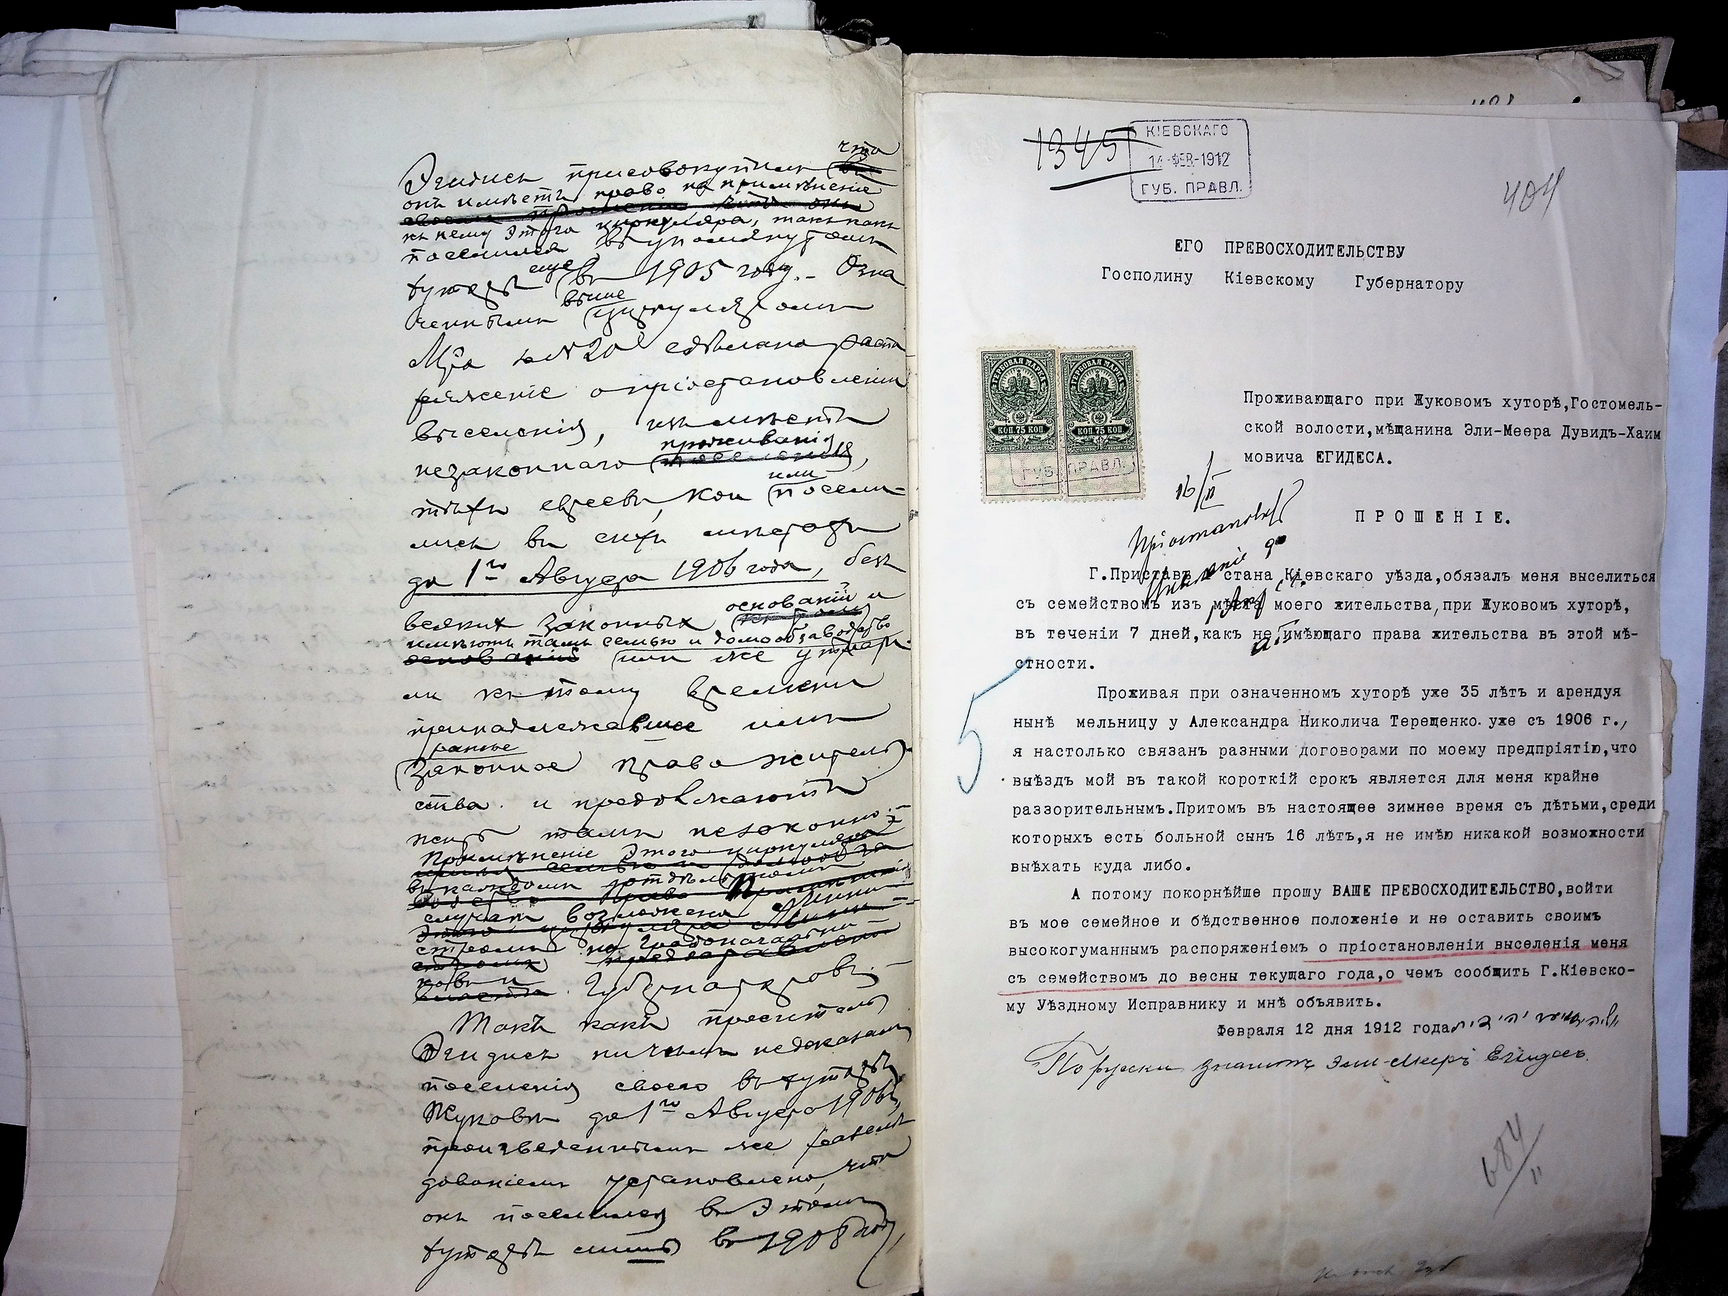 что
Эгидисъ присовокупилъ
онъ имѣетъ право на примѣненіе
къ нему этого циркуляра, такъ какъ
поселился въ упомянутомъ
хуторѣ еще въ 1905 году. Озна
ченнымъ выше циркуляромъ
М-ра за № 20 сдѣлано распо
ряженіе о пріостановленіи
выселенія, изъ мѣстъ
незаконнаго проживанія,
тѣхъ евреевъ, кои или посели-
лись въ сихъ мѣстахъ
до 1го Августа 1906 года, безъ
всякихъ законныхъ основаній и
имѣютъ тамъ семью и домообзаводство
или же утрати
ли къ тому времени
принадлежавшее имъ
ранѣе
законное право житель
ства и продолжаютъ
жить тамъ незаконно.
Примѣненіе этого циркуляра
въ каждомъ отдѣльномъ
случаѣ возложено Мини
стромъ на Градоначальни
ковъ и Губернаторовъ.
Такъ какъ проситель
Эгидисъ ничѣмъ не доказалъ
поселенія своего въ хуторѣ
Жуковѣ до 1го Августа 1906 г.,
произведеннымъ же разслѣ
дованіемъ установлено, что
онъ поселился въ этомъ
хуторѣ лишь въ 1908 году,
1345
КІЕВСКАГО
14 ФЕВ 1912
ГУБ. ПРАВЛ.
404
ЕГО ПРЕВОСХОДИТЕЛЬСТВУ
Господину Кіевскому Губернатору
ГЕРБОВАЯ МАРКА ГЕРБОВАЯ МАРКА
КОП 75 КОП КОП 75 КОП
ГУБ. ПРАВЛ.
Проживающаго при Жуковомъ хуторѣ,Гостомель-
ской волости,мѣщанина Эли-Меера Дувидъ-Хаим
мовича ЕГИДЕСА.
16/II
Пріостановить
ПРОШЕНІЕ.
Г.Приставъ стана Кіевскаго уѣзда,обязалъ меня выселиться
съ семействомъ изъ мѣста моего жительства,при Жуковомъ хуторѣ,
въ теченіи 7 дней,какъ не имѣющаго права жительства въ этой мѣ-
стности.
Проживая при означенномъ хуторѣ уже 35 лѣтъ и арендуя
нынѣ мельницу у Александра Николича Терещенко.уже съ 1906 г.,
я настолько связанъ разными договорами по моему предпріятію,что
выѣздъ мой въ такой короткій срокъ является для меня крайне
раззорительнымъ.Притомъ въ настоящее зимнее время съ дѣтьми,среди
которыхъ есть больной сынъ 16 лѣтъ,я не имѣю никакой возможности
выѣхать куда либо.
А потому покорнѣйше прошу ВАШЕ ПРЕВОСХОДИТЕЛЬСТВО,войти
въ мое семейное и бѣдственное положеніе и не оставить своимъ
высокогуманнымъ распоряженіемъ о пріостановленіи выселенія меня
съ семействомъ до весны текущаго года,о чемъ сообщить Г.Кіевско-
му Уѣздному Исправнику и мнѣ объявить.
Февраля 12 дня 1912 года.
По русски значитъ Эли-Мееръ Егидесъ
684/11
5